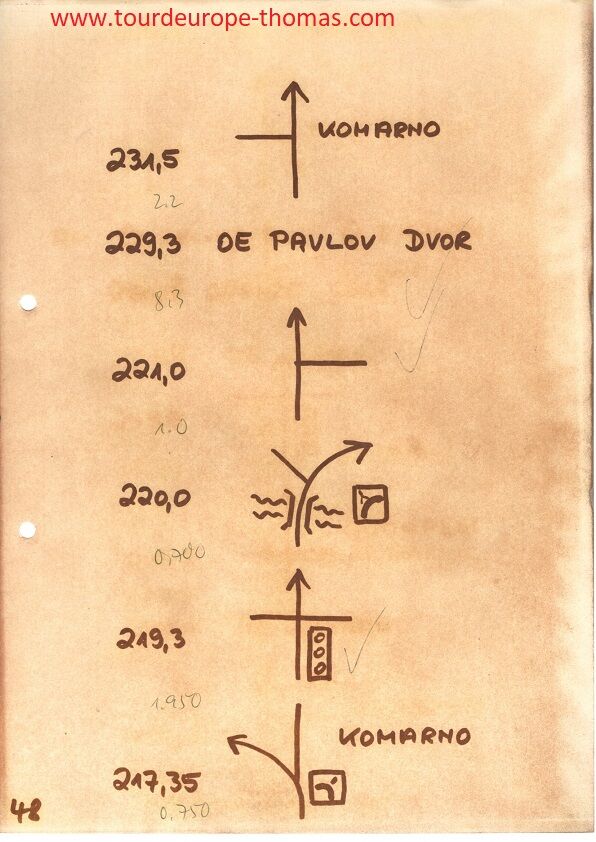 www.tourdeurope-thomas.com
KOMARNO
231,5
2.2
229,3 OE PAVLOV DVOR
8,3
221,0
1.0
220,0
0,700
219,3
1.950
KOMARNO
217,35
0,750
48